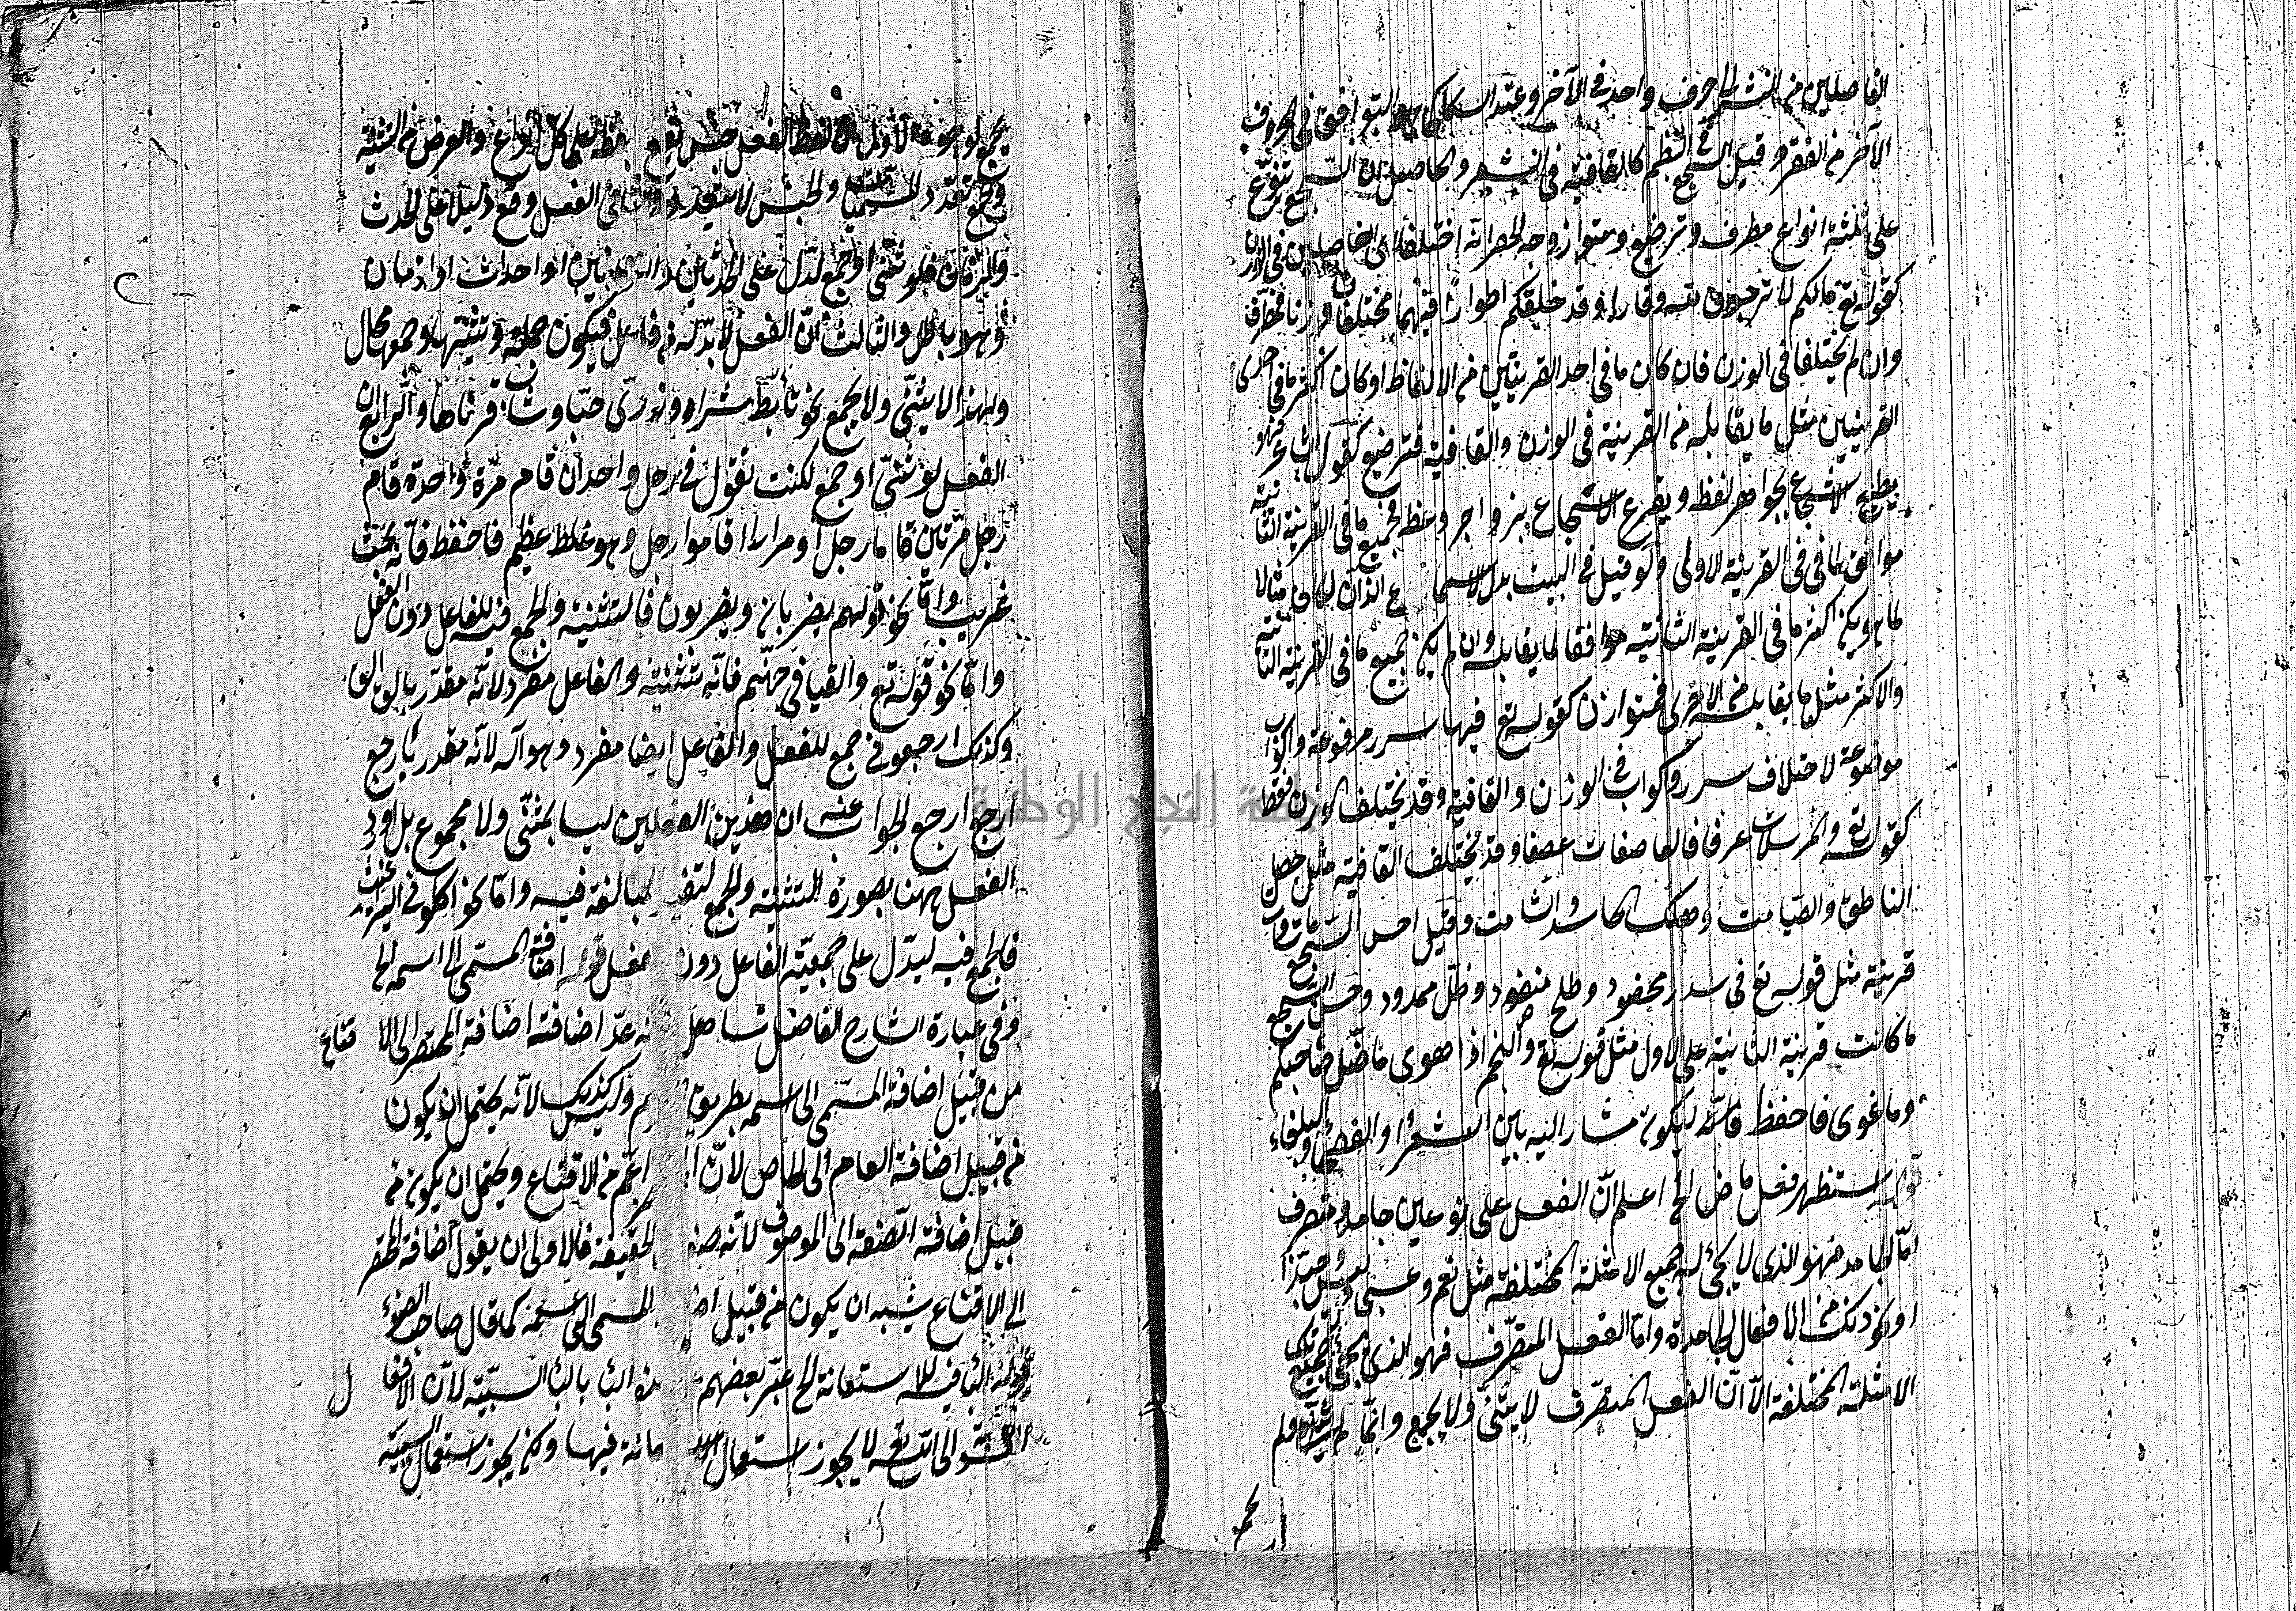 الفاصلين من النثر الى حرف واحد في الآخر وعند السكاكى هو التوافق في الحروف
الآخر من الفقر وقيل السجع في النظم كالقافية في الشعر والحاصل ان السجع يتنوع
على ثلثة انواع مطرف وترصيع ومتواز وجه الحصر انه اختلفا اى الفاصلين في الوزن
كقوله تع مالكم لا ترجون لله وقارا وقد خلقكم اطوارا فهما مختلفا وزنا فمطرف
وان لم يختلفا في الوزن فان كان ما في احد القرينتين من الالفاظ او كان اكثر ما في احدى
القرينتين مثل ما يقابله من القرينة في الوزن والقافية فترصيع كقول الشاعر فهو
يطبع الاسجاع بجواهر لفظه ويقرع الاسماع بزواجر وعظه فجميع ما في القرينة الثانية
موافق لما في القرينة الاولى ولو قيل في البيت بدل الاسماع الاذان لكان مثالا
لما يكون اكثر ما في القرينة الثانية موافقا لما يقابله وان لم يكن جميع ما في القرينة الثانية
والاكثر مثل ما يقابله من الاخرى فمتوازن كقوله تع فيها سرر مرفوعة واكواب
موضوعة لاختلاف سرر واكواب في الوزن والقافية وقد يختلف الوزن فقط
كقوله تع والمرسلات عرفا فالعاصفات عصفا وقد يختلف القافية مثل حصل
الناطق والصامت وهلك الحاسد والشامت وقيل احسن السجع ما تساوت
قرينة مثل قوله تع في سدر مخضود وطلح منضود وظل ممدود وحسن السجع
ما كانت قرينة الثانية على الاول مثل قوله تع والنجم اذا هوى ما ضل صاحبكم
وما غوى فاحفظ فانه ليكون مشارا اليه بين الشعرا والفصحاء والبلغاء
قوله استظهر فعل ماض الخ اعلم ان الفعل على نوعين جامد ومتصرف
اما الجامد فهو الذى لا يجئ له جميع الامثلة المختلفة مثل نعم وعسى وليس وحبذا
او نحو ذلك من الافعال الجامدة واما الفعل المتصرف فهو الذى يجئ جميع تلك
الامثلة المختلفة الا ان الفعل المتصرف لا يثنى ولا يجمع وانما لم يثن ولم
يجمع لوجوه الاول ان لفظ الفعل جنس يقع بلفظه على كل انواع والغرض من التثنية
والجمع تعدد المسميات والجنس لا متعدد والثانى الفعل وقع دليلا على الحدث
والزمان فلو ثنى او جمع لدل على الحدثين والزمانين او احداث او ازمان
وهو باطل والثالث ان الفعل لا بد له من فاعل فيكون جملة وتثنيتها وجمعها محال
ولهذا لا يثنى ولا يجمع نحو تأبط شرا وذرى حبا وشاب قرناها والرابع ان
الفعل لو ثنى او جمع لكنت تقول في رجل واحد ان قام مرة واحدة قام
رجل مرتين قاما رجل او مرارا قاموا رجل وهو غلط عظيم فاحفظ فانه بحث
غريب واما نحو قولهم يضربان ويضربون فالتثنية والجمع فيه للفاعل دون الفعل
واما نحو قوله تع القيا في جهنم فانه تثنية والفاعل مفرد لانه مقدر بالق الق
وكذلك ارجعون جمع للفعل والفاعل ايضا مفرد وهو اله لانه مقدر بارجع
ارجع ارجع الجواب عنه ان هذين الفعلين ليسا بمثنى ولا مجموع بل اورد
الفعل ههنا بصورة التثنية والجمع مبالغة فيه واما نحو اكلونى البراغيث
فالجمع فيه ليدل على جمعية الفاعل دون الفعل قوله اضافة المسمى الى اسمه الخ
وفي عبارة الشارح الفاضل تساهل عد اضافته اضافة المختصر الى الاقناع
من قبيل اضافة المسمى الى اسمه بطريق وليس كذلك لانه يحتمل ان يكون
من قبيل اضافة العام الى الخاص لان اعم من الاقناع ويحتمل ان يكون من
قبيل اضافة الصفة الى الموصوف لانه الحقيقة فالاولى ان يقول اضافة المختصر
الى الاقناع يشبه ان يكون من قبيل المسمى الى اسمه كما قال صاحب الضوء
الباء فيه للاستعانة الخ عبر بعضهم هذه الباء بالباء السببية لان الافعال
الى الله تع لا يجوز استعمال فيها ولكن يجوز استعمال السببية